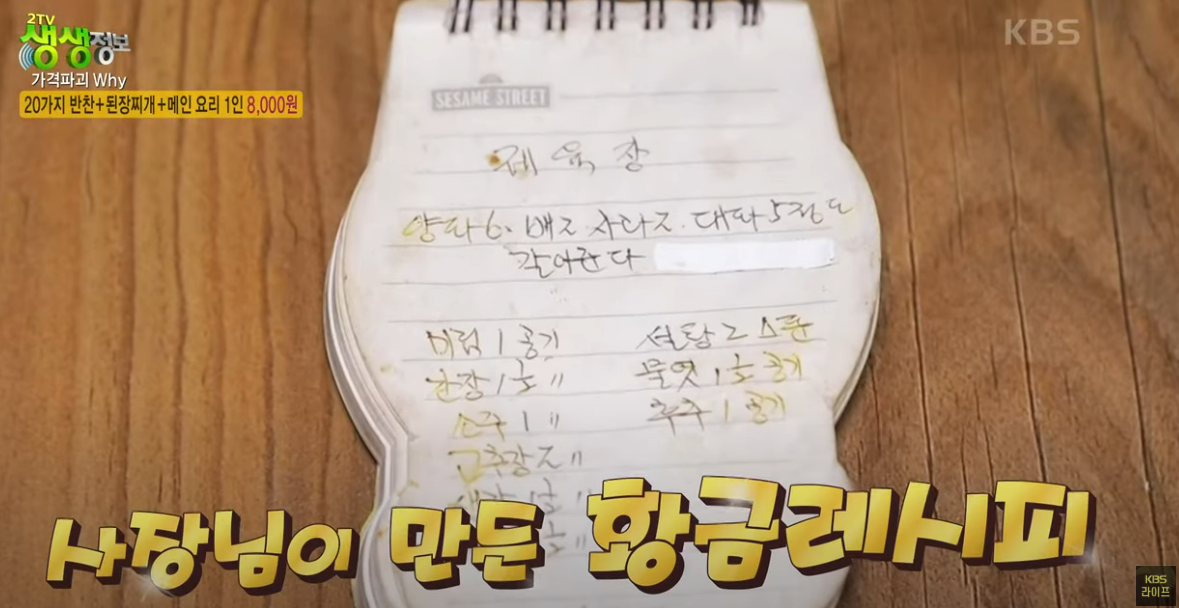 2TV
생생정보
KBS
가격파괴 Why
20가지 반찬+된장찌개+메인 요리 1인 8,000원
SESAME STREET
제육장
양파6. 배2 사과2. 대파 5정도
갈아준다
미림 1 공기 설탕 2 스푼
간장 1½ 〃 물엿 1½ 공기
소주 1 〃 후추 1 공기
고추장 2 〃
사장님이 만든 황금레시피
KBS
라이프